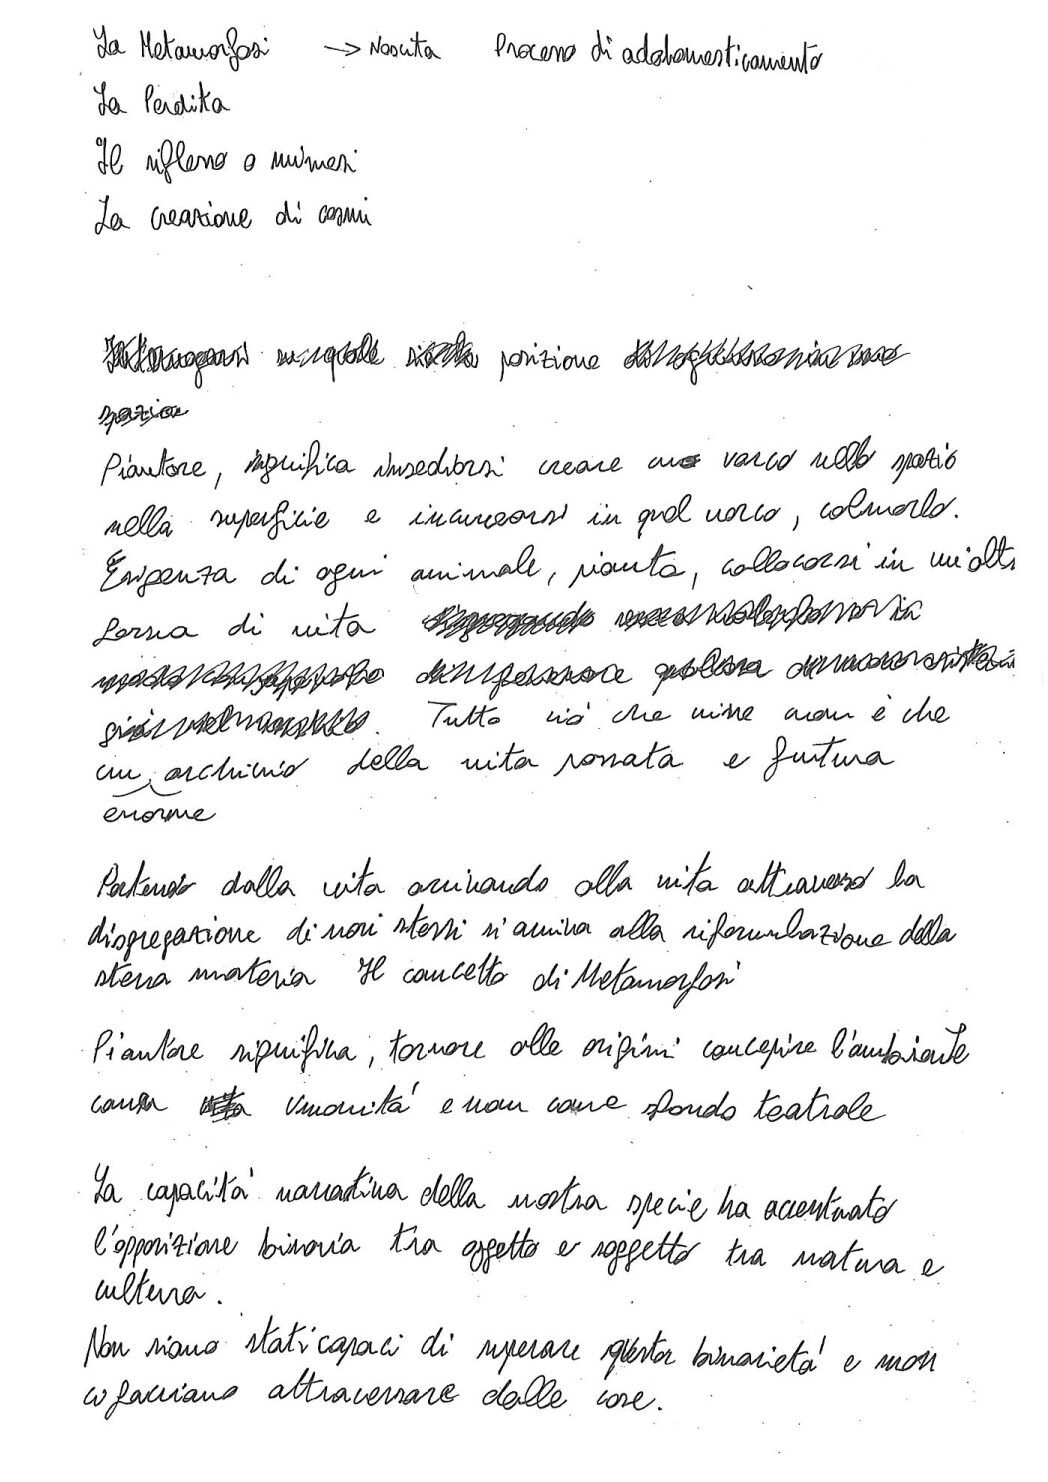 La Metamorfosi → Nascita Processo di addomesticamento
La Perdita
Il riflesso o mimesi
La creazione di cosmi
posizione
spazio
Piantare, significa insediarsi creare un varco nello spazio
nella superficie e incunearsi in quel varco, colmarlo.
Esigenza di ogni animale, pianta, collocarsi in un'altr
forma di vita
Tutto ciò che vive non è che
un archivio della vita passata e futura
enorme
Partendo dalla vita arrivando alla vita attraverso la
disgregazione di noi stessi si arriva alla riformulazione della
stessa materia Il concetto di Metamorfosi
Piantare significa, tornare alle origini concepire l'ambiente
come umanità e non come sfondo teatrale
La capacità narrativa della nostra specie ha accentuato
l'opposizione binaria tra oggetto e soggetto tra natura e
cultura.
Non siamo stati capaci di superare questa binarietà e non
ci facciamo attraversare dalle cose.